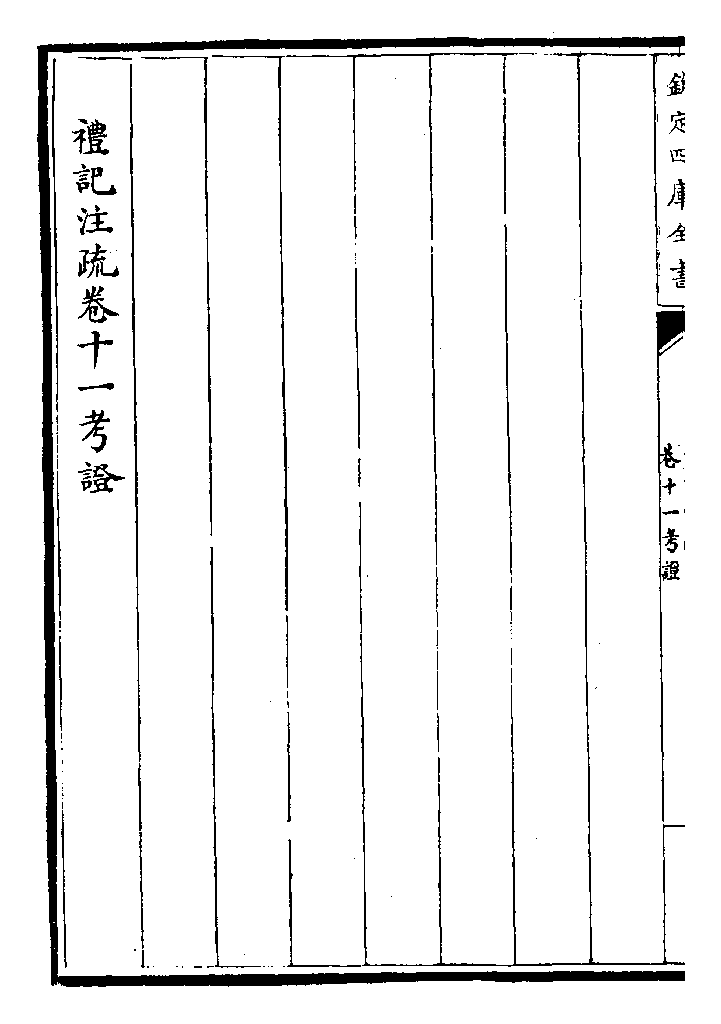 欽定四庫全書
卷十一考證
禮記注疏卷十一考證